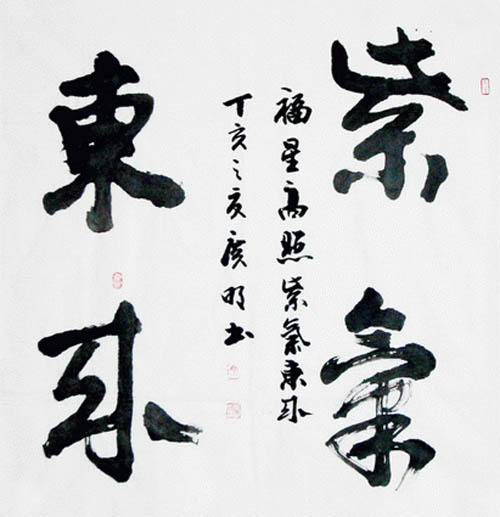 紫氣
福星高照紫氣東來
丁亥之夏廣明书
東來